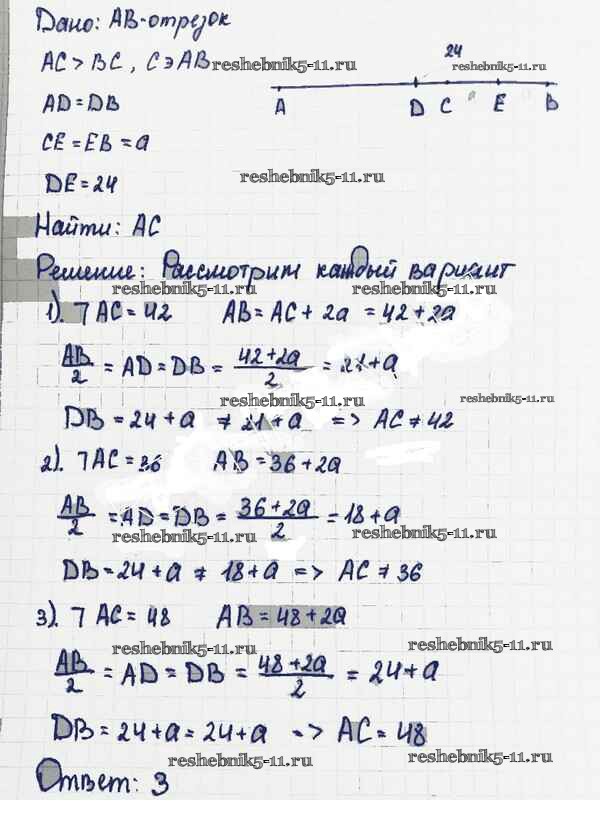 Дано: AB-отрезок
AC > BC, C э AB reshebnik5-11.ru
24
reshebnik5-11.ru
A D C a E B
AD = DB
CE = EB = a
DE = 24 reshebnik5-11.ru
Найти: AC
Решение: Рассмотрим каждый вариант
reshebnik5-11.ru reshebnik5-11.ru
1). ⅂ AC = 42 AB = AC + 2a = 42 + 2a
AB/2 = AD = DB = (42 + 2a)/2 = 21 + a
reshebnik5-11.ru reshebnik5-11.ru
DB = 24 + a ≠ 21 + a => AC ≠ 42
2). ⅂ AC = 36 AB = 36 + 2a
AB/2 = AD = DB = (36 + 2a)/2 = 18 + a
reshebnik5-11.ru reshebnik5-11.ru
DB = 24 + a ≠ 18 + a => AC ≠ 36
3). ⅂ AC = 48 AB = 48 + 2a
reshebnik5-11.ru reshebnik5-11.ru
AB/2 = AD = DB = (48 + 2a)/2 = 24 + a
DB = 24 + a = 24 + a => AC = 48
reshebnik5-11.ru reshebnik5-11.ru
Ответ: 3